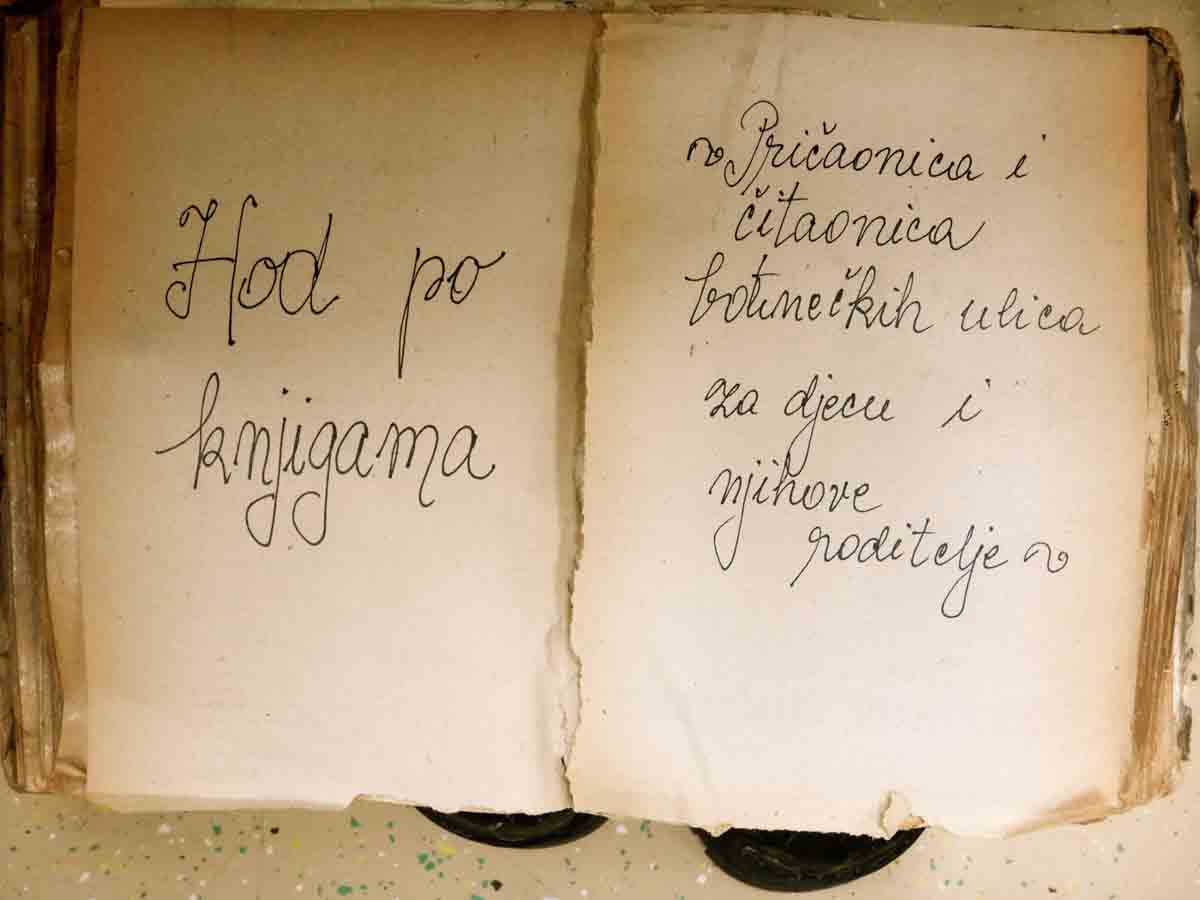 Hod po
knjigama
~ Pričaonica i
čitaonica
botinečkih ulica
za djecu i
njihove
roditelje ~